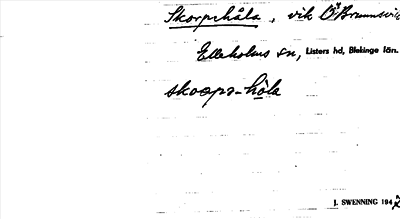 Skorpehåla, vik
Elleholms sn, Listers hd, Blekinge län.
skoəpə-hòla
J. SWENNING 194